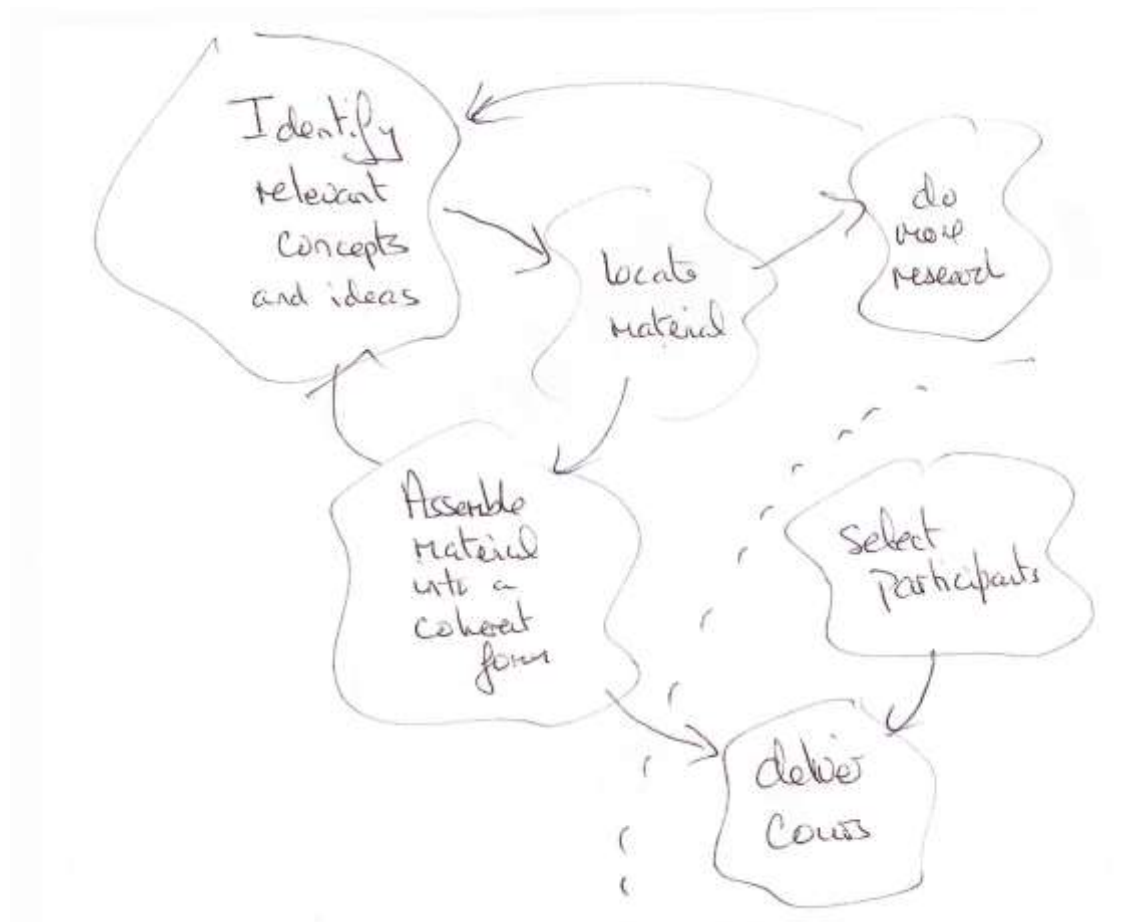 Identify
relevant
concepts
and ideas
locate
material
do
more
research
Assemble
material
into a
coherent
form
Select
participants
deliver
Course